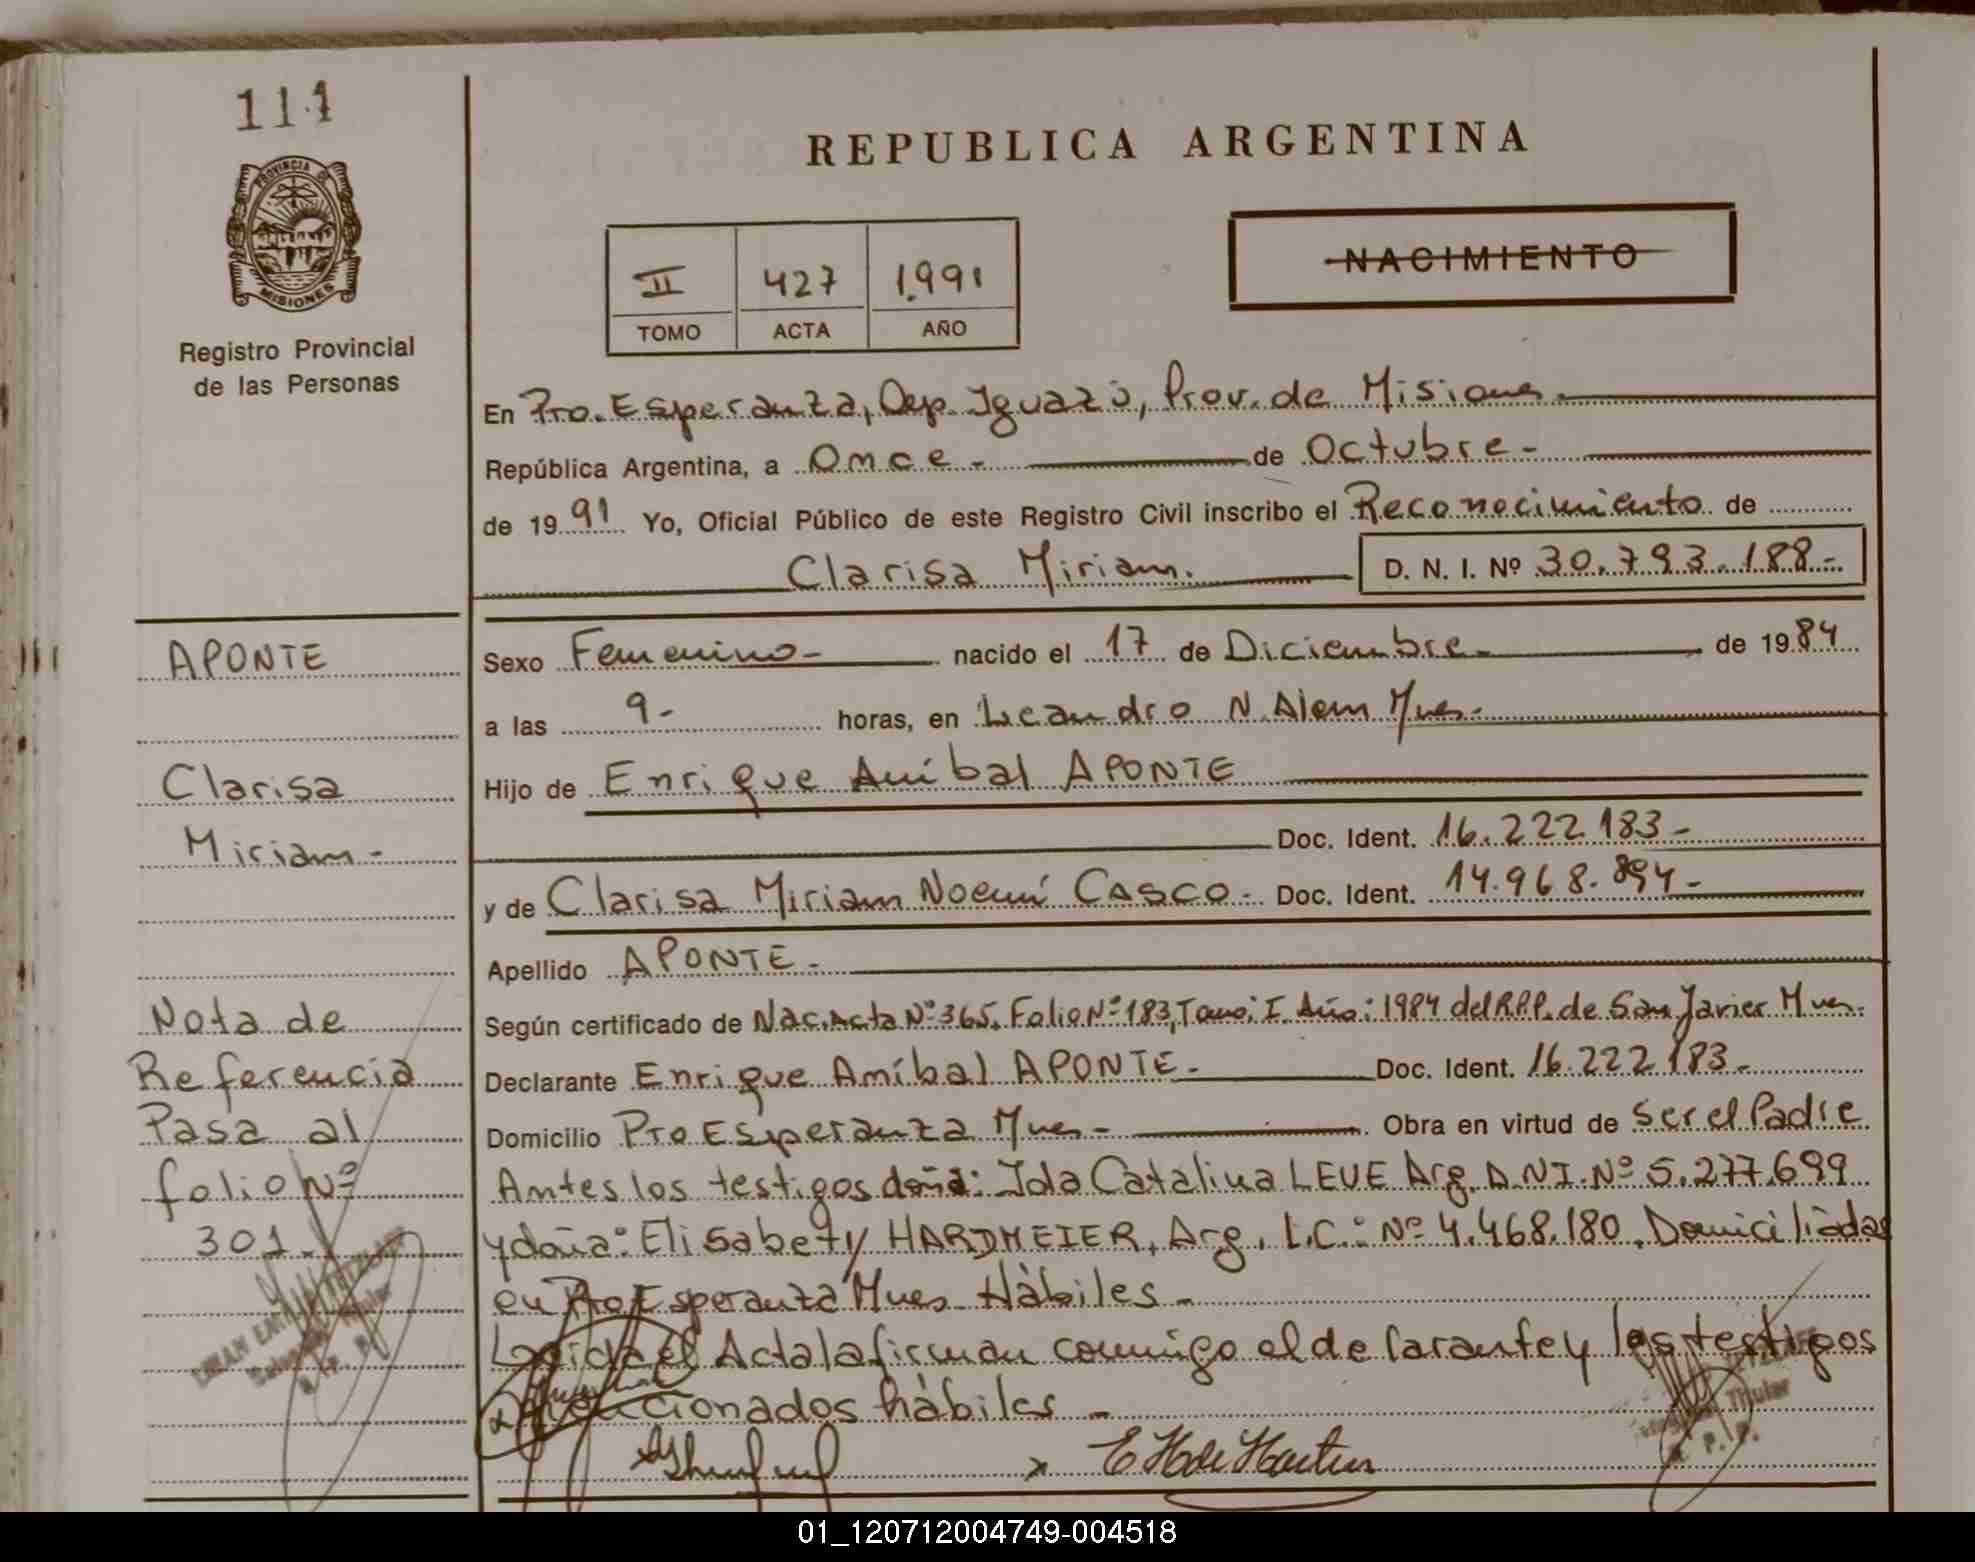 111
REPUBLICA ARGENTINA
PROVINCIA DE
MISIONES
Registro Provincial
de las Personas
II 427 1.991
TOMO ACTA AÑO
NACIMIENTO
En Pto. Esperanza, Dep. Iguazú, Prov. de Misiones.
República Argentina, a Once - de Octubre -
de 19 91 Yo, Oficial Público de este Registro Civil inscribo el Reconocimiento de
Clarisa Miriam. D. N. I. Nº 30.793.188-
APONTE
Clarisa
Miriam -
Nota de
Referencia
Pasa al
folio Nº
301.
Sexo Femenino - nacido el 17 de Diciembre - de 19 84
a las 9- horas, en Leandro N. Alem Mnes.
Hijo de Enrique Aníbal APONTE
Doc. Ident. 16.222.183-
y de Clarisa Miriam Noemí CASCO - Doc. Ident. 14.968.894-
Apellido APONTE -
Según certificado de Nac. Acta Nº 365, Folio Nº 183, Tomo: I Año: 1984 del R.P.P. de San Javier Mnes.
Declarante Enrique Aníbal APONTE - Doc. Ident. 16.222.183-
Domicilio Pto Esperanza Mnes - Obra en virtud de Ser el Padre
Antes los testigos doña: Ida Catalina LEUE Arg. D.N.I. Nº 5.277.699
y doña: Elisabety HARDMEIER, Arg. L.C.: Nº 4.468.180. Domiciliadas
en Pto Esperanza Mnes Hábiles -
Leida el Acta la firman conmigo el declarante y los testigos
mencionados hábiles -
Titular
R. P. P.
01_120712004749-004518